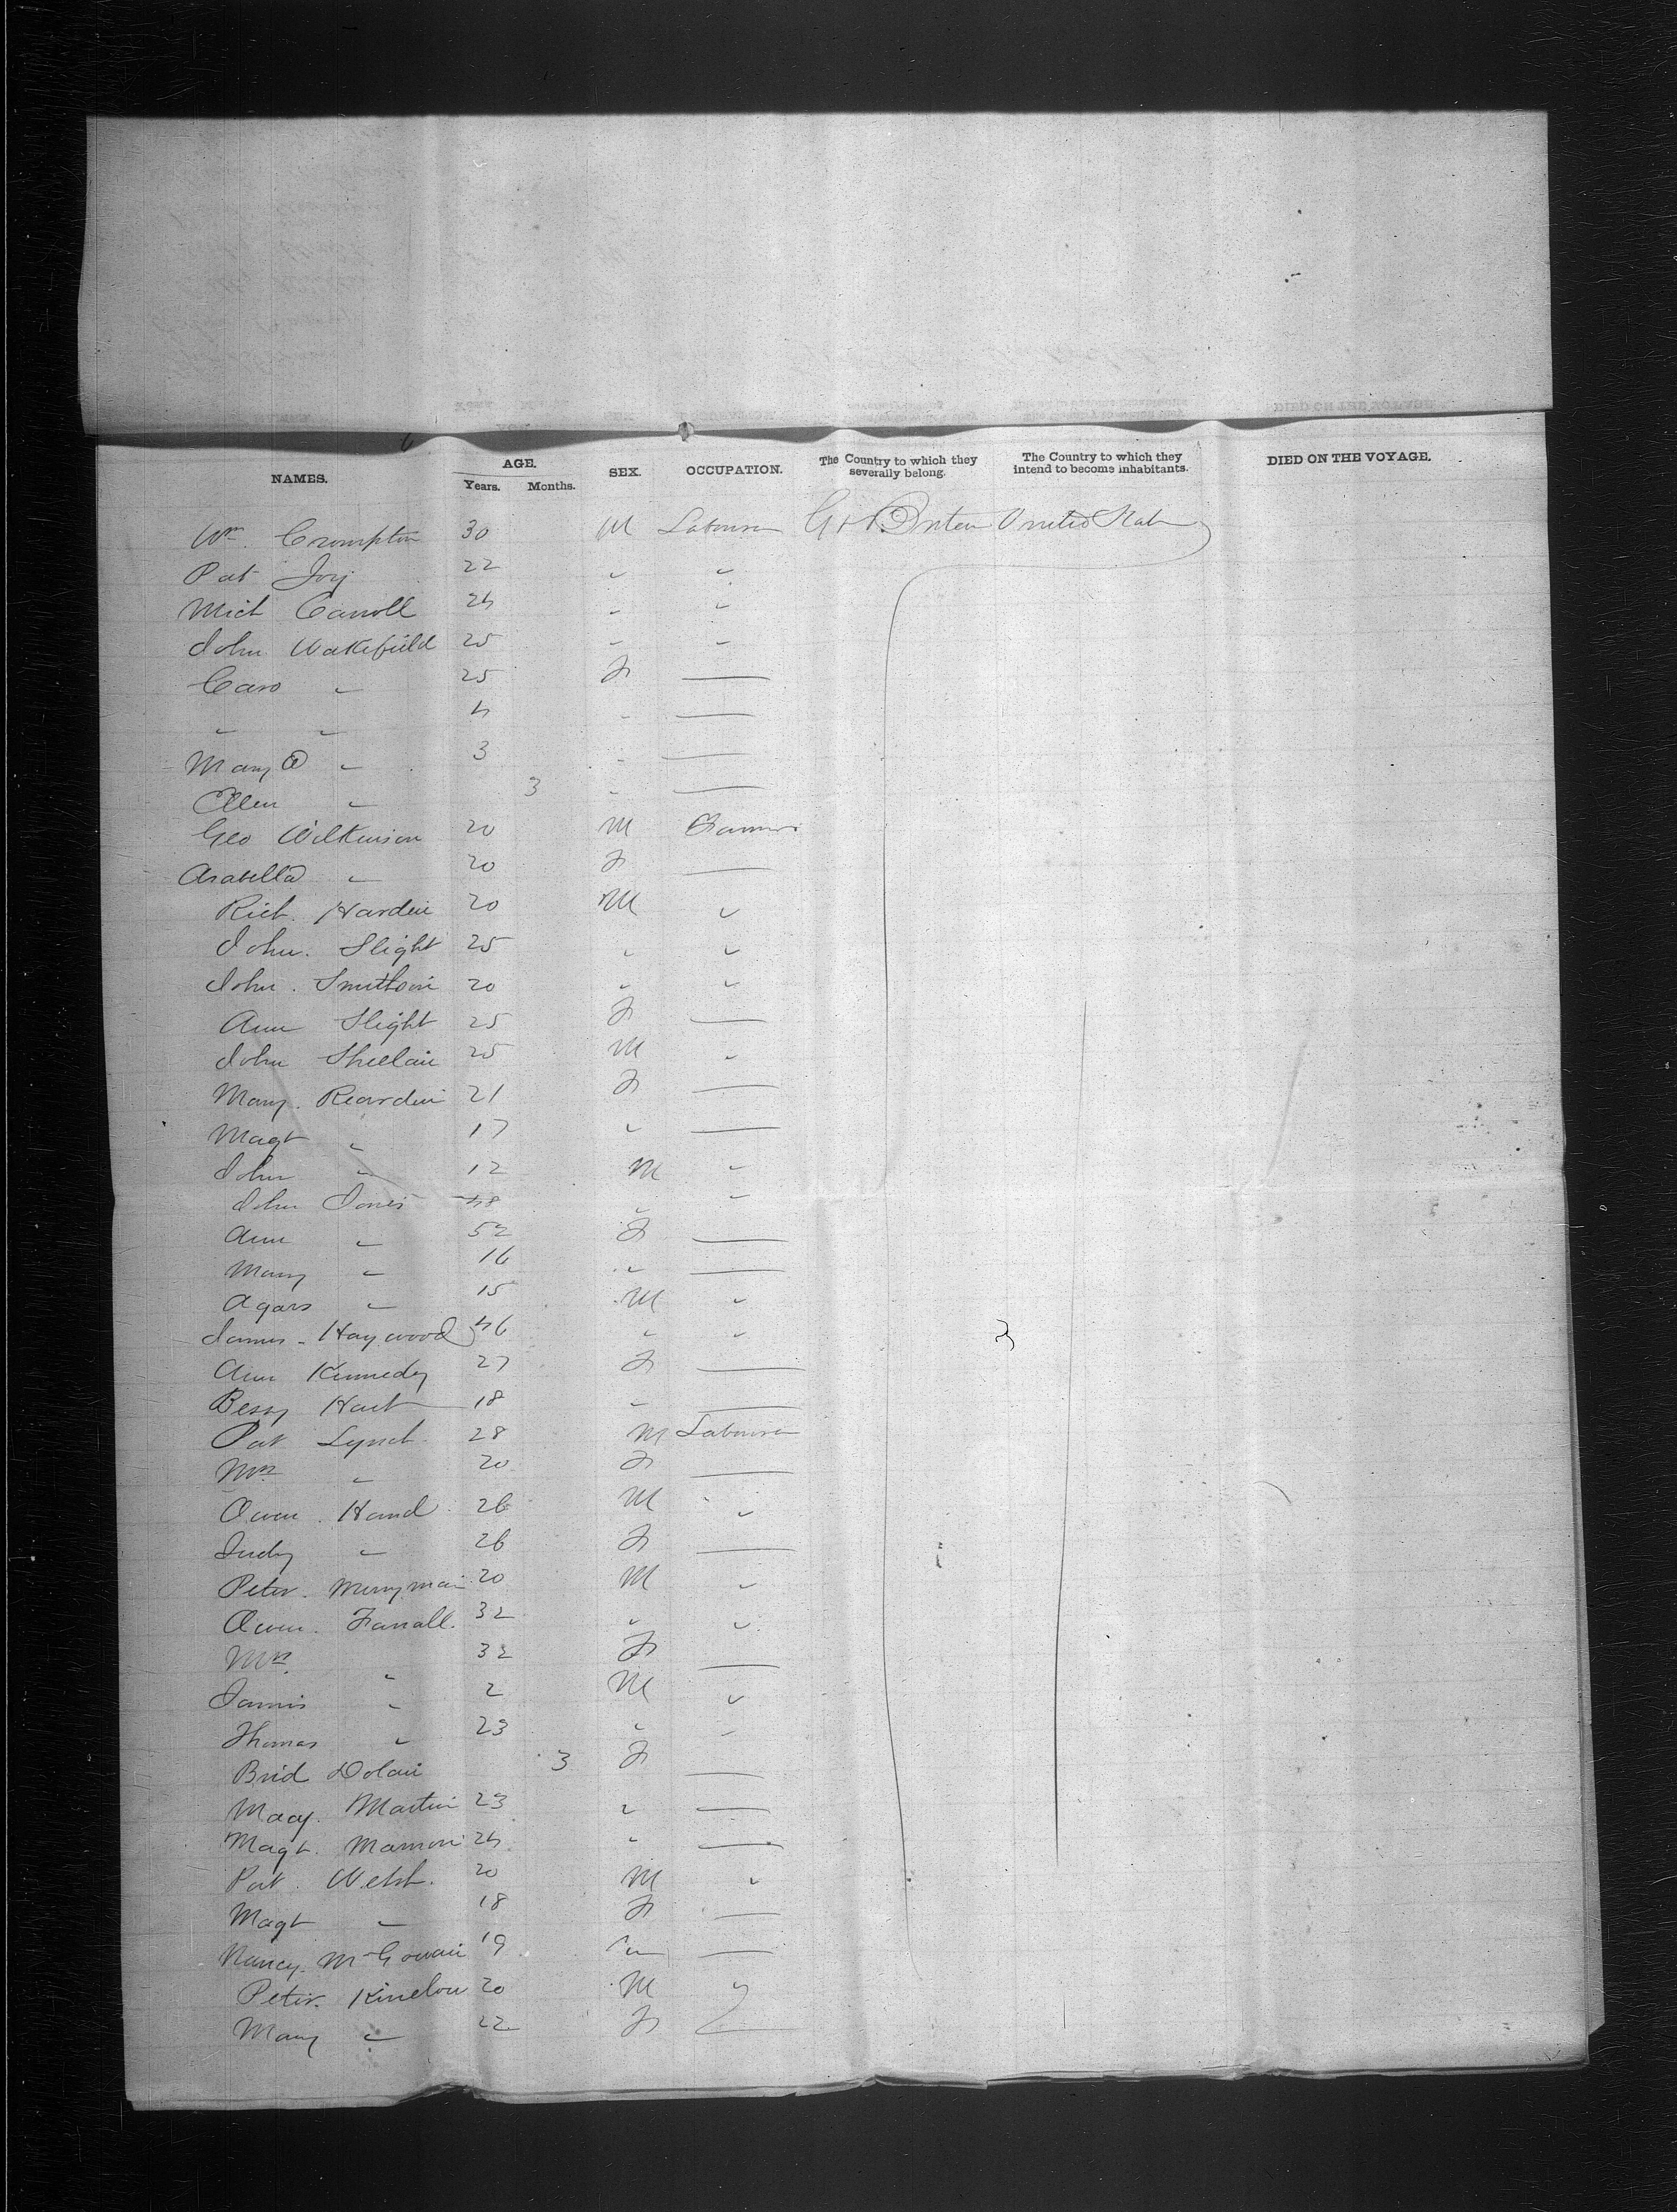 NAMES. AGE. Years. Months. SEX. OCCUPATION. The Country to which they severally belong. The Country to which they intend to become inhabitants. DIED ON THE VOYAGE.
Wm. Crompton 30 M Labourer Gt Britain United States
Pat Joy 22 " "
Mich Carroll 24 " "
John Wakefield 25 " "
Caro " 25 F —
" " 4 " —
Mary A " 3 " —
Ellen " 3 " —
Geo Wilkinson 20 M Farmer
Arabella " 20 F —
Rich. Hardin 20 M "
John. Slight 25 " "
John. Smithson 20 " "
Ann Slight 25 F —
John Sheelain 25 M "
Mary. Reardin 21 F —
Magt " 17 " —
John " 12 M "
John Jones 48 " "
Ann " 52 F —
Mary " 16 " —
Agars " 15 M "
James - Haywood 46 " "
Ann Kennedy 27 F —
Bessy Hart 18 " —
Pat Lynch 28 M Labourer
Mrs " 20 F —
Owen. Hand 26 M "
Judy " 26 F —
Peter. Merryman 20 M "
Owen. Farrall. 32 " "
Mrs. " 32 F —
James " 2 M "
Thomas " 23 " "
Brid Dolan 3 F —
Mary. Martin 23 " —
Magt. Mannon 24 " —
Pat. Welsh. 20 M "
Magt " 18 F —
Nancy. McGowan 19 " —
Peter. Kinelow 20 M "
Mary " 22 F —